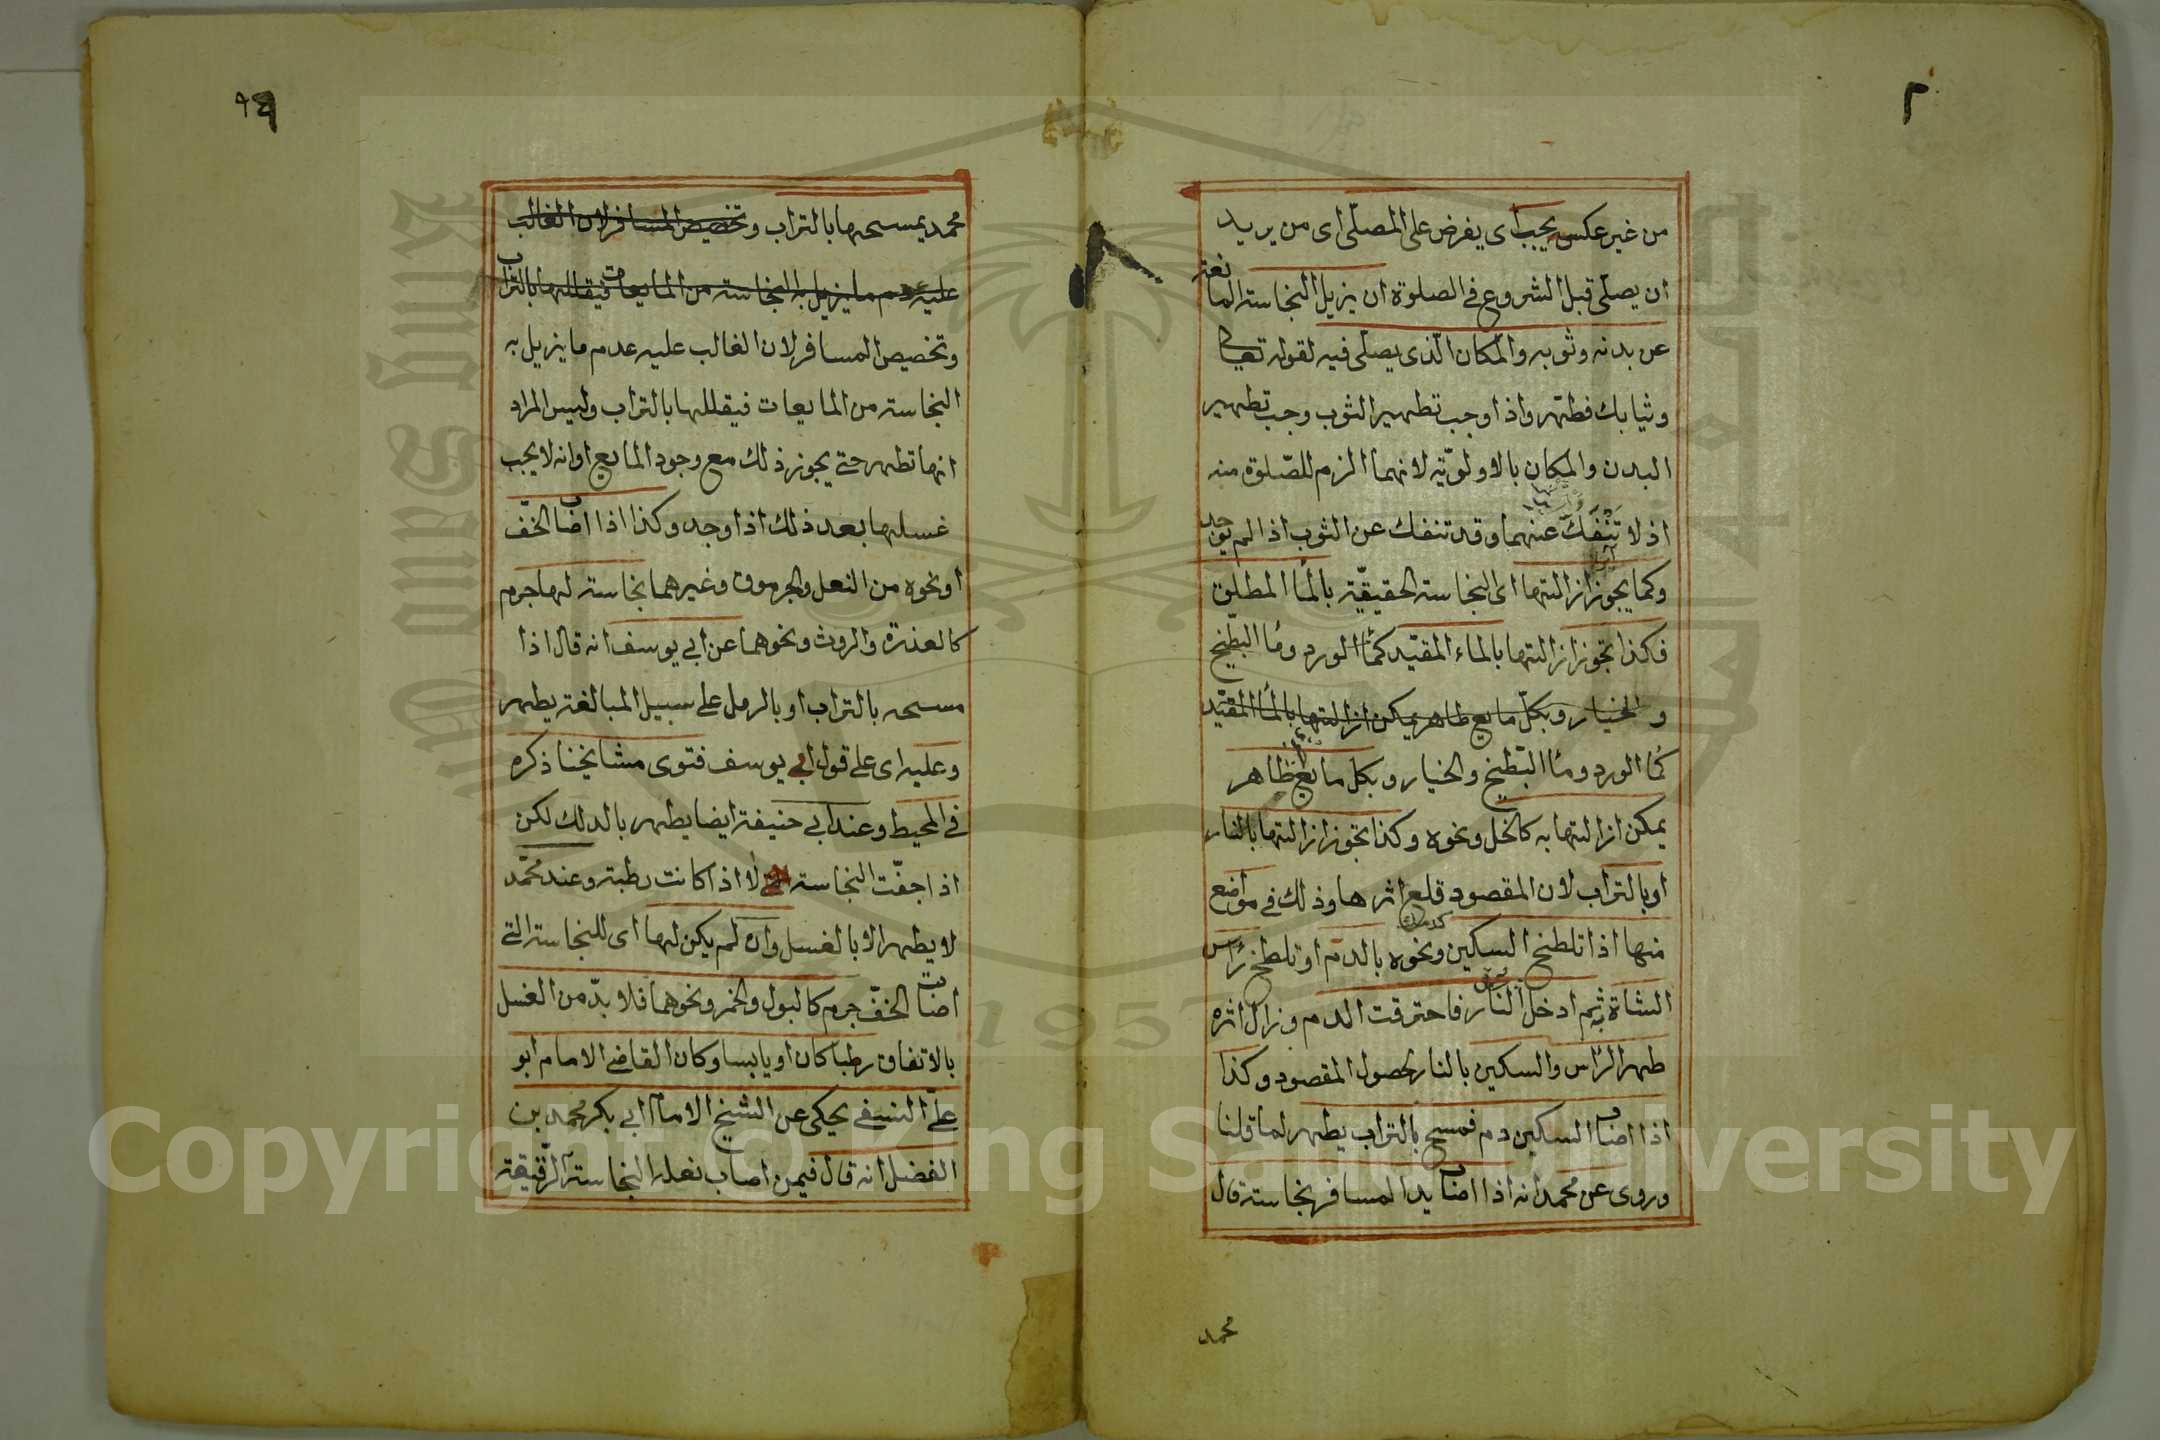 ٢
من غير عكس يجب اى يفرض على المصلّى اى من يريد
ان يصلّى قبل الشروع فى الصلوة ان يزيل النجاسة المانعة
عن بدنه وثوبه والمكان الّذى يصلّى فيه لقوله تعالى
وثيابك فطهّر واذا وجب تطهير الثوب وجب تطهير
البدن والمكان بالاولويّة لانهما الزم للصّلوة منه
اذ لا تَنْفَكُّ عنهما وقد تنفك عن الثوب اذا لم يوجد
وكما يجوز ازالتها اى النجاسة الحقيقيّة بالماء المطلق
فكذا تجوز ازالتها بالماء المقيّد كماء الورد وماء البطّيخ
والخيار وبكلّ مايع طاهر يمكن ازالتها بالماء المقيّد
كماء الورد وماء البّطيخ والخيار وبكل مايع طاهر
يمكن ازالتها به كالخل ونحوه وكذا تجوز ازالتها بالنار
او بالتراب لان المقصود قلع اثرها وذلك فى مواضع
منها اذا تلطخ السكين ونحوه بالدم او تلطخ رأس
الشاة به ثم ادخل النار فاحترقت الدم وزال اثره
طهر الرأس والسكين بالنار لحصول المقصود وكذا
اذا اصاب السكين دم فمسح بالتراب يطهر لما قلنا
وروى عن محمد انه اذا اصاب يد المسافر نجاسة قال
محمد
٩٩
محمد يمسحها بالتراب وتخصيص المسافر لان الغالب
عليه عدم ما يزيل به النجاسة من المايعات فيقللها بالتراب
وتخصيص المسافر لان الغالب عليه عدم ما يزيل به
النجاسة من المايعات فيقللها بالتراب وليس المراد
انها تطهر حتى يجوز ذلك مع وجود المايع او انه لا يجب
غسلها بعد ذلك اذا وجد وكذا اذا اصاب الخفّ
او نحوه من النعل والجرموق وغيرهما نجاسة لها جرم
كالعذرة والروث ونحوهما عن ابي يوسف انه قال اذا
مسحه بالتراب او بالرمل على سبيل المبالغة يطهر
وعليه اى على قول ابي يوسف فتوى مشايخنا ذكره
فى المحيط وعند ابي حنيفة ايضا يطهر بالدلك لكن
اذا جفّت النجاسة لا اذا كانت رطبة وعند محمّد
لا يطهر الا بالغسل وان لم يكن لها اى للنجاسة التى
اصابت الخفّ جرم كالبول والخمر ونحوهما فلا بدّ من الغسل
بالاتفاق رطبا كان او يابسا وكان القاضى الامام ابو
علىّ النسفى يحكى عن الشيخ الامام ابي بكر محمد بن
الفضل انه قال فيمن اصاب نعله النجاسة الرّقيقة
Copyright © King Saud University
King Saud University
1957